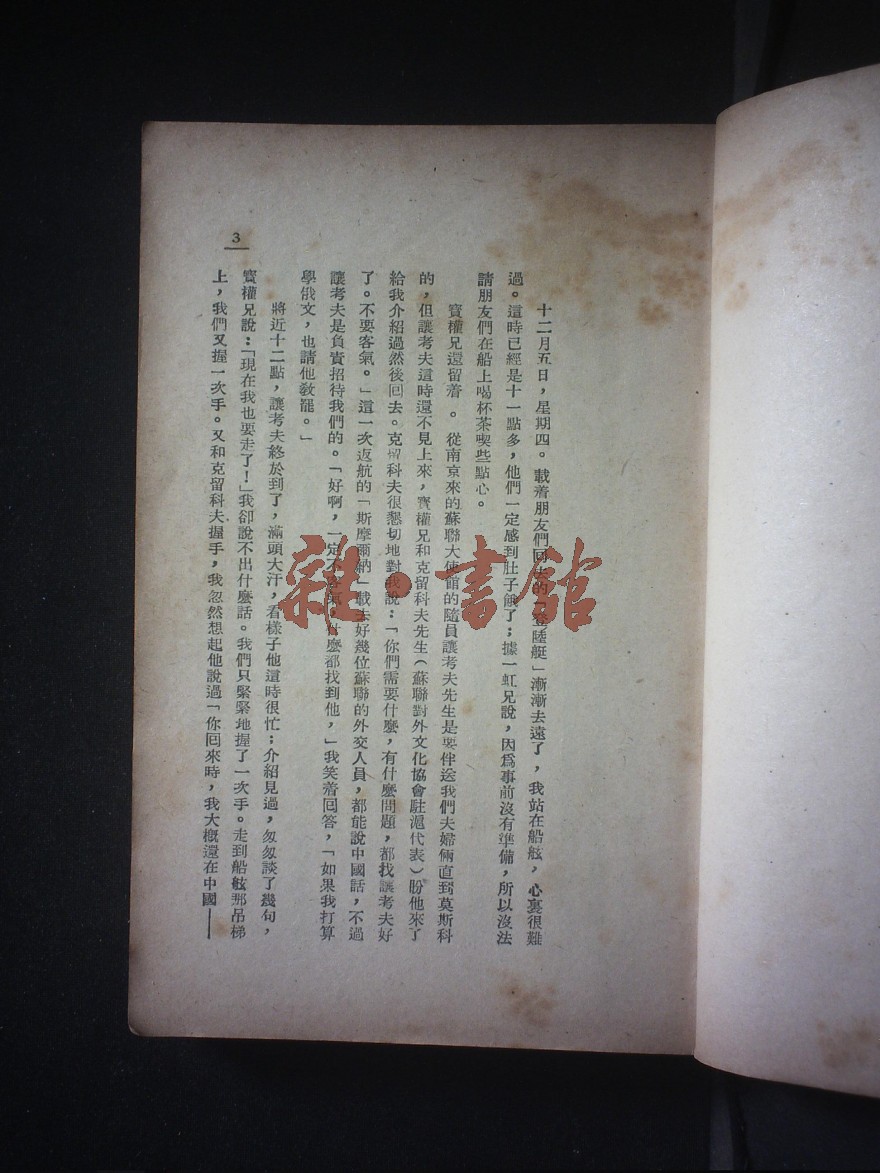 十二月五日，星期四。載着朋友們回去的「登陸艇」漸漸去遠了，我站在船舷，心裏很難
過。這時已經是十一點多，他們一定感到肚子餓了；據一虹兄說，因爲事前沒有準備，所以沒法
請朋友們在船上喝杯茶喫些點心。
寶權兄還留着　。從南京來的蘇聯大使館的隨員讓考夫先生是要伴送我們夫婦倆直到莫斯科
的，但讓考夫這時還不見上來，寶權兄和克留科夫先生（蘇聯對外文化協會駐滬代表）盼他來了
給我介紹過然後回去。克留科夫很懇切地對我說：「你們需要什麼，有什麼問題，都找讓考夫好
了。不要客氣。」這一次返航的「斯摩爾納」載去好幾位蘇聯的外交人員，都能說中國話，不過
讓考夫是負責招待我們的。「好啊，一定不客氣，什麼都找到他，」我笑着回答，「如果我打算
學俄文，也請他敎罷。」
將近十二點，讓考夫終於到了，滿頭大汗，看樣子他這時很忙；介紹見過，匆匆談了幾句，
寶權兄說：「現在我也要走了！」我卻說不出什麼話。我們只緊緊地握了一次手。走到船舷那吊梯
上，我們又握一次手。又和克留科夫握手，我忽然想起他說過「你回來時，我大概還在中國——
3
雜·書館